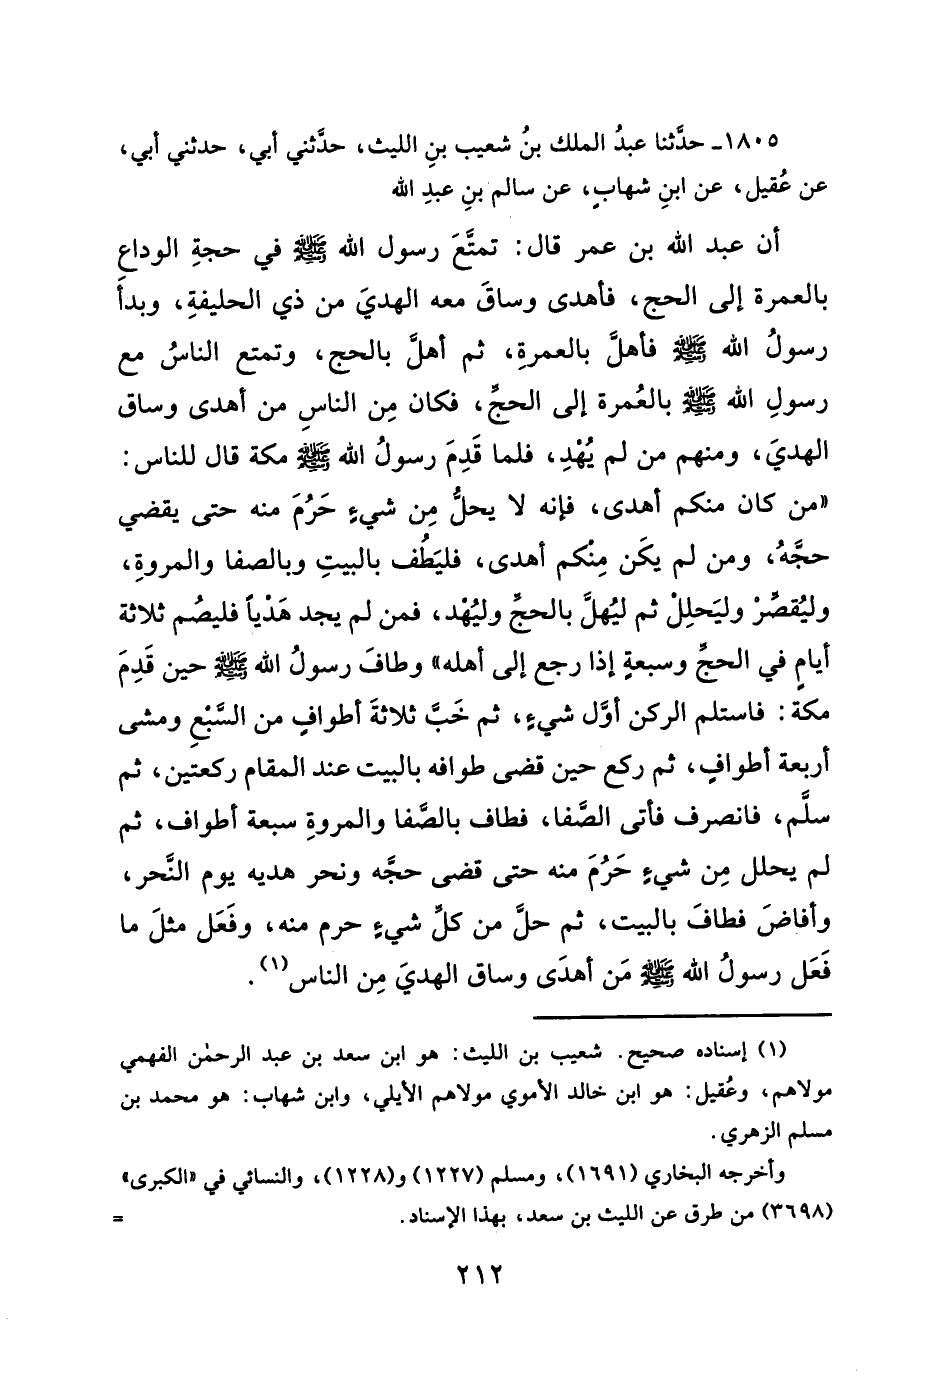 ١٨٠٥ـ حدَّثنا عبدُ الملك بنُ شعيب بنِ الليث، حدَّثني أبي، حدثني أبي،
عن عُقيل، عن ابنِ شهابٍ، عن سالم بنِ عبدِ الله
أن عبد الله بن عمر قال: تمتَّعَ رسول الله ﷺ في حجةِ الوداعِ
بالعمرة إلى الحج، فأهدى وساقَ معه الهديَ من ذي الحليفةِ، وبدأَ
رسولُ الله ﷺ فأهلَّ بالعمرةِ، ثم أهلَّ بالحج، وتمتع الناسُ مع
رسولِ الله ﷺ بالعُمرة إلى الحجِّ، فكان مِن الناسِ من أهدى وساق
الهديَ، ومنهم من لم يُهْدِ، فلما قَدِمَ رسولُ الله ﷺ مكة قال للناس:
«من كان منكم أهدى، فإنه لا يحلُّ مِن شيءٍ حَرُمَ منه حتى يقضي
حجَّهُ، ومن لم يكَن مِنْكم أهدى، فليَطُف بالبيتِ وبالصفا والمروةِ،
وليُقصِّرْ وليَحلِلْ ثم ليُهلَّ بالحجِّ وليُهْد، فمن لم يجد هَدْياً فليصُم ثلاثة
أيامٍ في الحجِّ وسبعةٍ إذا رجع إلى أهله» وطافَ رسولُ الله ﷺ حين قَدِمَ
مكة: فاستلم الركن أوَّل شيءٍ، ثم خَبَّ ثلاثةَ أطوافٍ من السَّبْعِ ومشى
أربعة أطوافٍ، ثم ركع حين قضى طوافه بالبيت عند المقام ركعتين، ثم
سلَّم، فانصرف فأتى الصَّفا، فطاف بالصَّفا والمروةِ سبعة أطواف، ثم
لم يحلل مِن شيءٍ حَرُمَ منه حتى قضى حجَّه ونحر هديه يوم النَّحر،
وأفاضَ فطافَ بالبيت، ثم حلَّ من كلِّ شيءٍ حرم منه، وفَعَل مثلَ ما
فَعَل رسولُ الله ﷺ مَن أهدَى وساق الهديَ مِن الناس(١).
(١) إسناده صحيح. شعيب بن الليث: هو ابن سعد بن عبد الرحمٰن الفهمي
مولاهم، وعُقيل: هو ابن خالد الأموي مولاهم الأيلي، وابن شهاب: هو محمد بن
مسلم الزهري.
وأخرجه البخاري (١٦٩١)، ومسلم (١٢٢٧) و(١٢٢٨)، والنسائي في «الكبرى»
(٣٦٩٨) من طرق عن الليث بن سعد، بهذا الإسناد. =
٢١٢